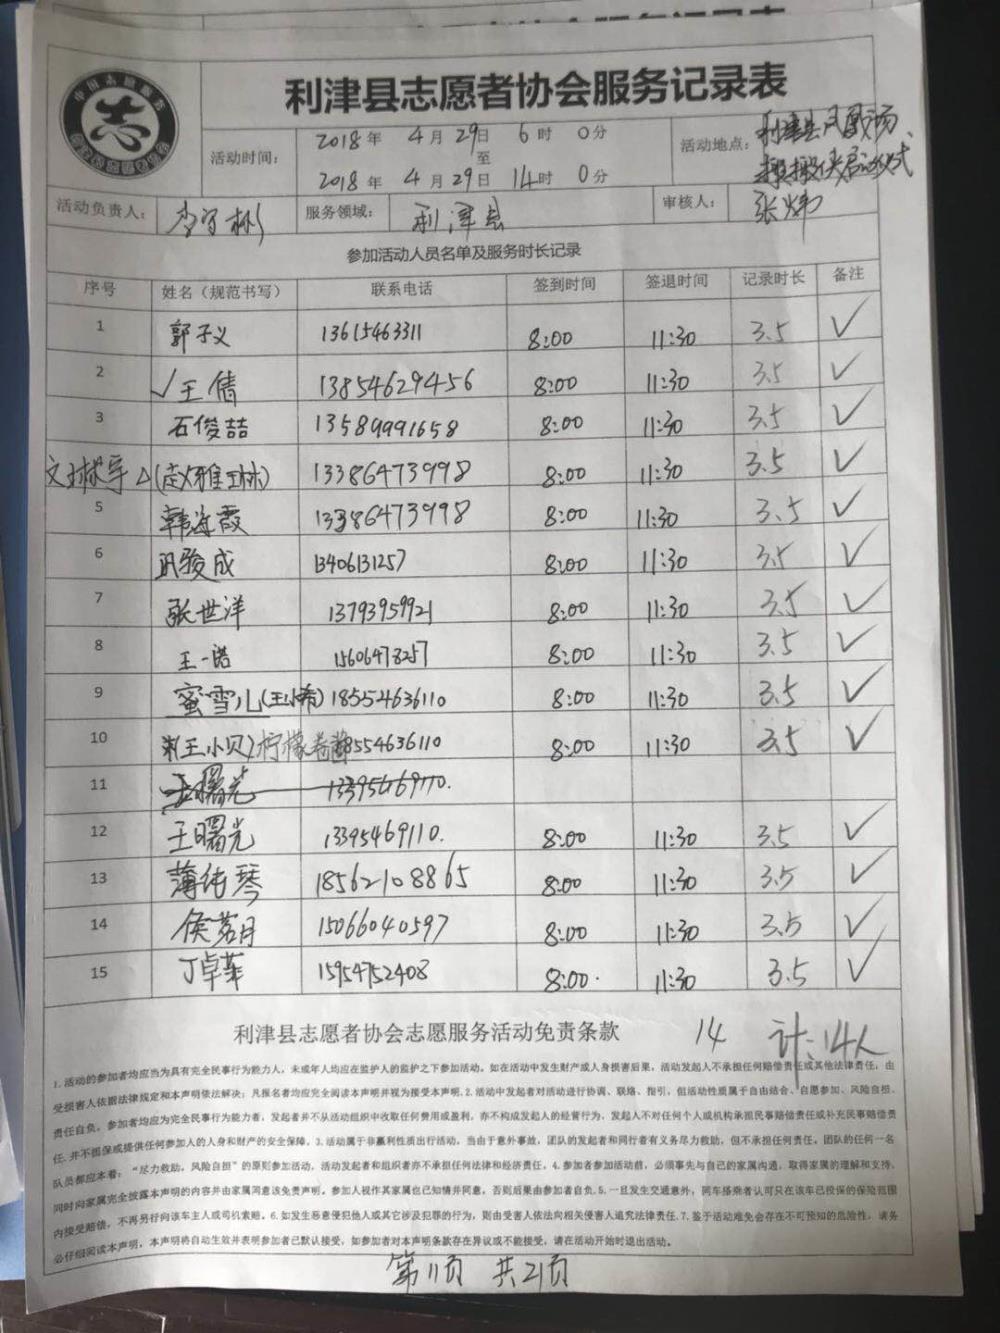 利津县志愿者协会服务记录表
活动时间：
2018年 4月29日 6时 0分
至
2018年 4月29日 14时 0分
活动地点：
利津县凤凰广场、
活动负责人：
服务领域：利津县
审核人：张炜
参加活动人员名单及服务时长记录
序号 姓名（规范书写） 联系电话 签到时间 签退时间 记录时长 备注
1 郭子义 13615463311 8:00 11:30 3.5 ✓
2 ✓王倩 13854629456 8:00 11:30 3.5 ✓
3 石俊喆 13589991658 8:00 11:30 3.5 ✓
(赵雅琳) 13386473998 8:00 11:30 3.5 ✓
5 韩海霞 13386473998 8:00 11:30 3.5 ✓
6 巩骏成 13406131257 8:00 11:30 3.5 ✓
7 张世洋 13793959921 8:00 11:30 3.5 ✓
8 王一诺 15606478257 8:00 11:30 3.5 ✓
9 蜜雪儿(王小希) 18554636110 8:00 11:30 3.5 ✓
10 (王小贝)柠檬 18554636110 8:00 11:30 3.5 ✓
11 王曙光 13395469110.
12 王曙光 13395469110. 8:00 11:30 3.5 ✓
13 薄纯琴 18562108865 8:00 11:30 3.5 ✓
14 侯茗月 15066040597 8:00 11:30 3.5 ✓
15 丁卓华 15954752408 8:00. 11:30 3.5 ✓
利津县志愿者协会志愿服务活动免责条款 14 计:14人
1.活动的参加者均应当为具有完全民事行为能力人，未成年人均应在监护人的监护之下参加活动。如在活动中发生财产或人身损害后果，活动发起人不承担任何赔偿责任或其他法律责任，由
受损害人依据法律规定和本声明依法解决；凡报名者均应完全阅读本声明并视为接受本声明。2.活动中发起者对活动进行协调、联络、指引，但活动性质属于自由结合、自愿参加、风险自担、
责任自负。参加者均应为完全民事行为能力者，发起者并不从活动组织中收取任何费用或盈利，亦不构成发起人的经营行为，发起人不对任何个人或机构承担民事赔偿责任或补充民事赔偿责
任，并不担保或提供任何参加人的人身和财产的安全保障。3.活动属于非赢利性质出行活动，当由于意外事故，团队的发起者和同行者有义务尽力救助，但不承担任何责任。团队的任何一名
队员都应本着：“尽力救助，风险自担”的原则参加活动，活动发起者和组织者亦不承担任何法律和经济责任。4.参加者参加活动前，必须事先与自己的家属沟通，取得家属的理解和支持，
同时向家属完全披露本声明的内容并由家属同意该免责声明。参加人视作其家属也已知情并同意，否则后果由参加者自负。5.一旦发生交通意外，同车搭乘者认可只在该车已投保的保险范围
内接受赔偿，不再另行向该车主人或司机索赔。6.如发生恶意侵犯他人或其它涉及犯罪的行为，则由受害人依法向相关侵害人追究法律责任。7.鉴于活动难免会存在不可预知的危险性，请务
必仔细阅读本声明，本声明将自动生效并表明参加者已默认接受，如参加者对本声明条款存在异议或不能接受，请在活动开始时退出活动。
第11页 共21页